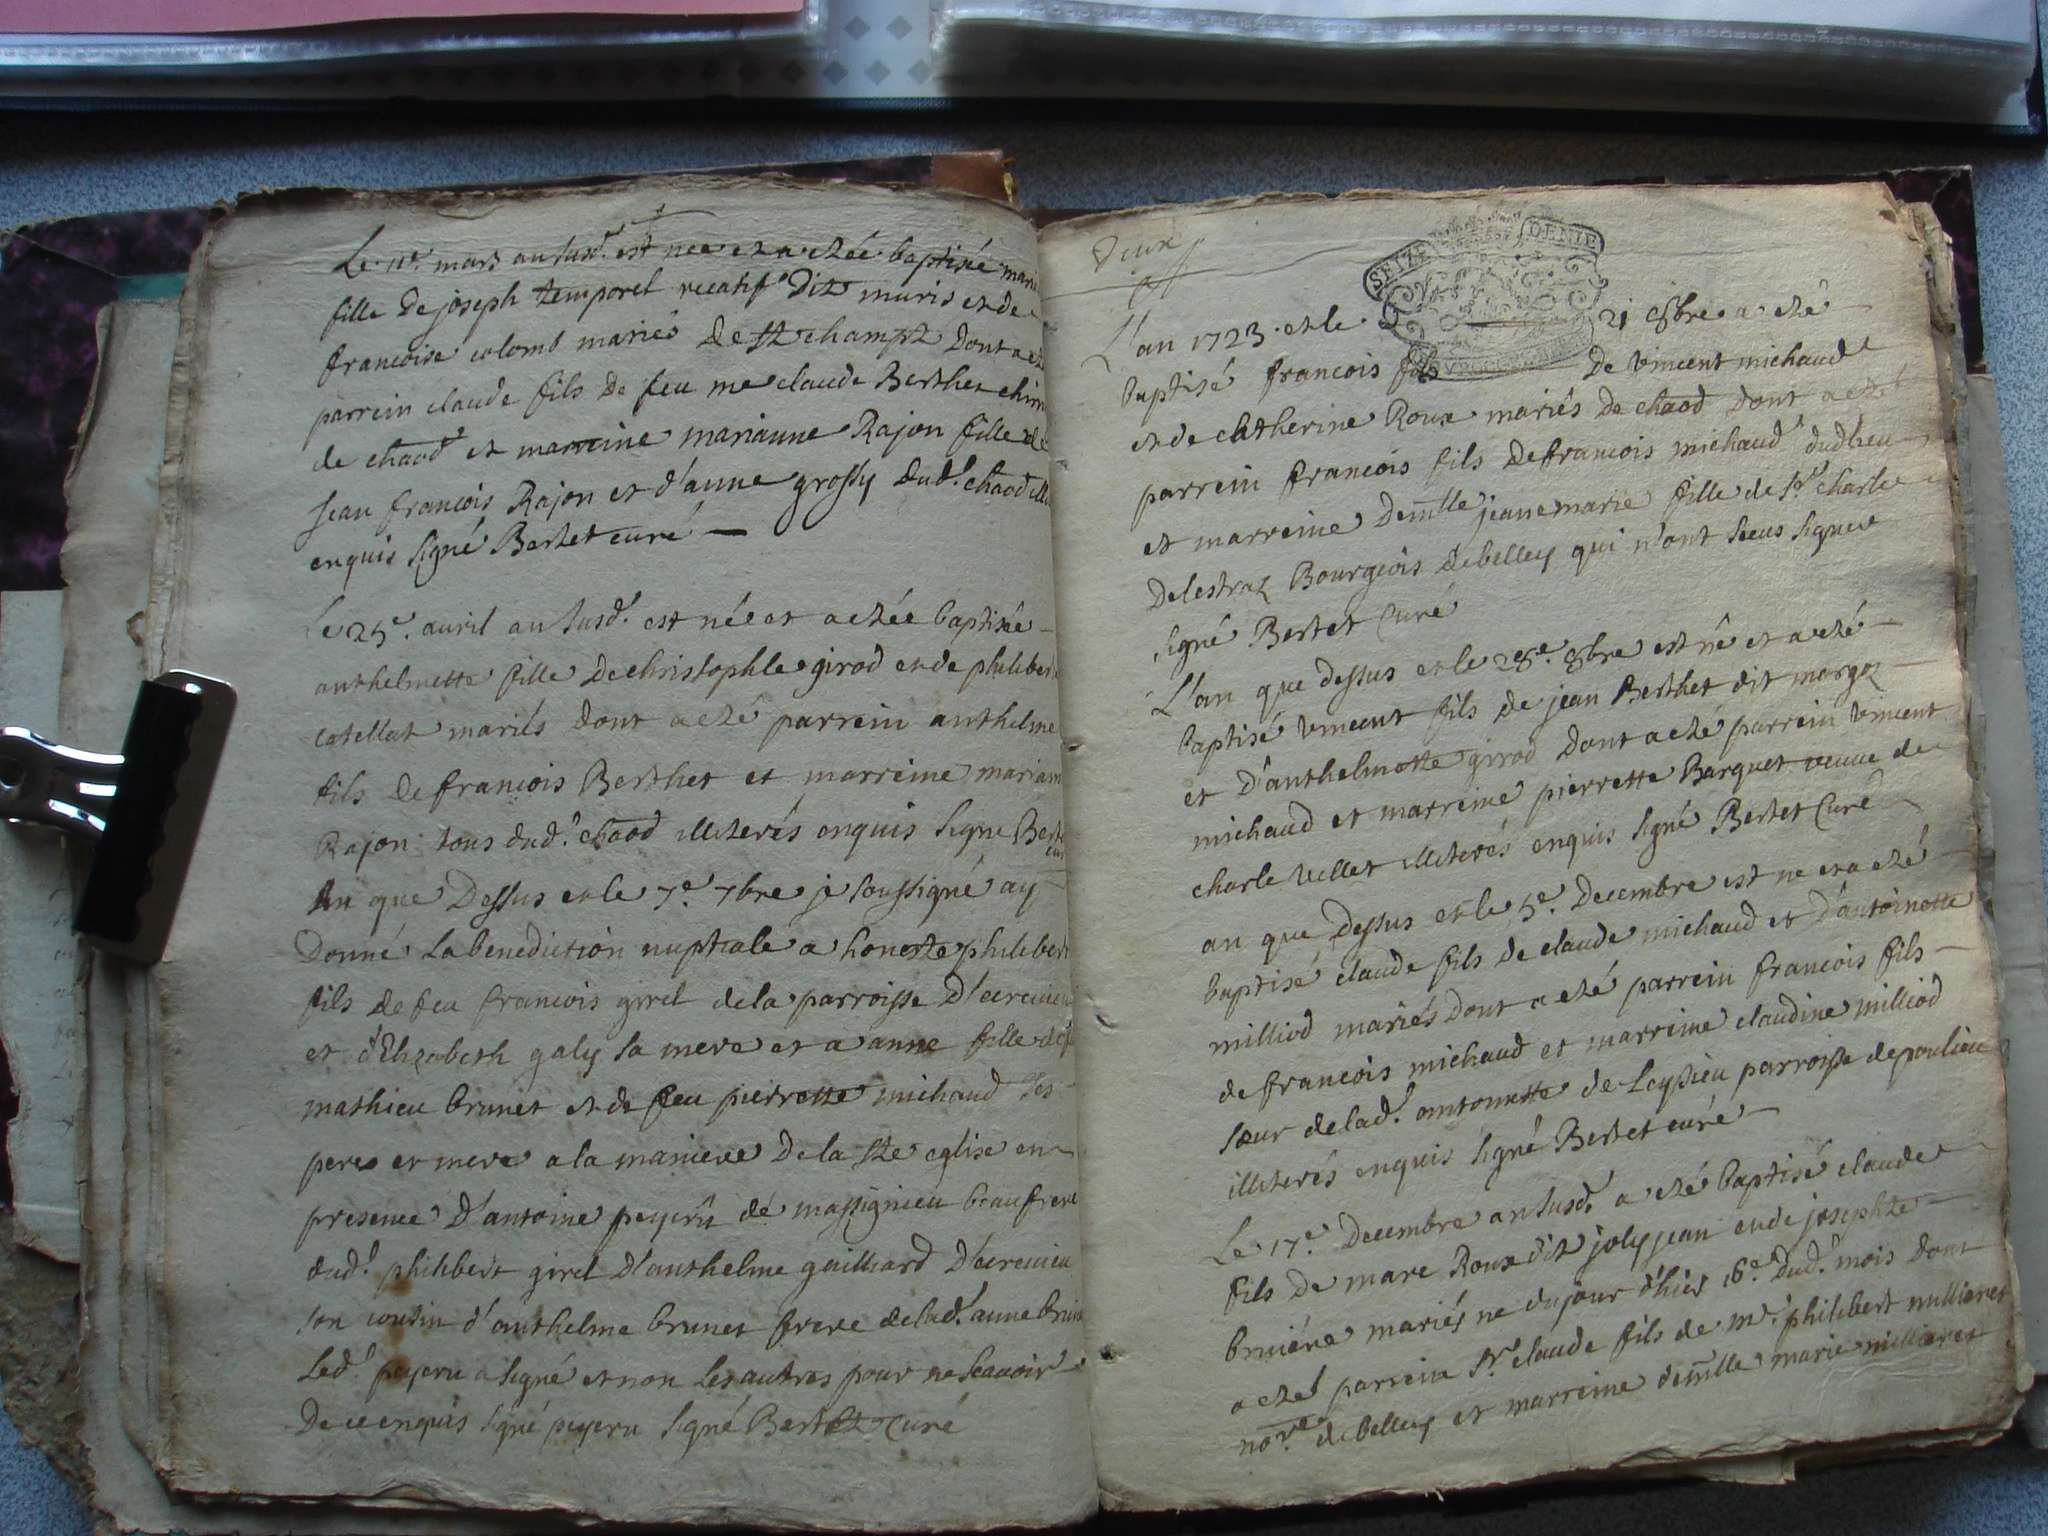 Le 11e. mars an susd. est nee et a etée baptisée marie
fille de joseph temporel dit muris et de
francoise colomb mariés de st champt dont a eté
parrein claude fils de feu me claude Berthet
de chaod et marreine marianne Rajon fille de
jean francois Rajon et d'anne grossy dud. chaod
enquis signé Bertet curé
Le 25e. avril an susd. est née et a etée baptisée
anthelmette fille de christophle girod et de philiberte
catellat mariés dont a eté parrein anthelme
fils de francois Berthet et marreine marianne
Rajon tous dud. chaod illiterés enquis signé Bertet
curé
An que dessus et le 7e. 7bre je soussigné ay
donné la benediction nuptiale a honeste philibert
fils de feu francois girel de la parroisse d'
et d'Elizabeth galy sa mere et a anne fille de
mathieu brunet et de feu pierrette michaud ses
peres et mere a la maniere de la ste eglise en
presence d'antoine peyeru de massignieu beaufrere
dud. philibert girel d'anthelme gailliard d'
son cousin d'anthelme brunet frere de lad. anne brunet
led. peyeru a signé et non les autres pour ne scavoir
de ce enquis signé peyeru signé Bertet curé
deux
SEIZE DENIE
L'an 1723 et le 21 8bre a eté
baptisé francois fils de vincent michaud
et de chatherine Roux mariés de chaod dont a eté
parrein francois fils de francois michaud dudlieu
et marreine demlle jeanemarie fille de sr. charle
delestraz Bourgeois de belley qui n'ont sceus signer
signé Bertet Curé
L'an que dessus et le 28e. 8bre est né et a eté
baptisé vincent fils de jean Berthet dit margoz
et d'anthelmette girod dont a eté parrein vincent
michaud et marreine pierrette Barquet veuve de
charle vullet illiterés enquis signé Bertet Curé
an que dessus et le 5e. decembre est ne et a eté
baptisé claude fils de claude michaud et d'antoinette
milliod mariés dont a eté parrein francois fils
de francois michaud et marreine claudine milliod
sœur de lad. antoinette de Leyssieu parroisse de poulieu
illiterés enquis signé Bertet curé
Le 17e. decembre an susd. a eté baptisé claude
fils de marc Roux dit joly jean et de josephte
bruiére mariés ne du jour d'hier 16e. dud. mois dont
a eté parrein sr. claude fils de me. philibert millieret
nore. de belley et marreine demlle marie millieret